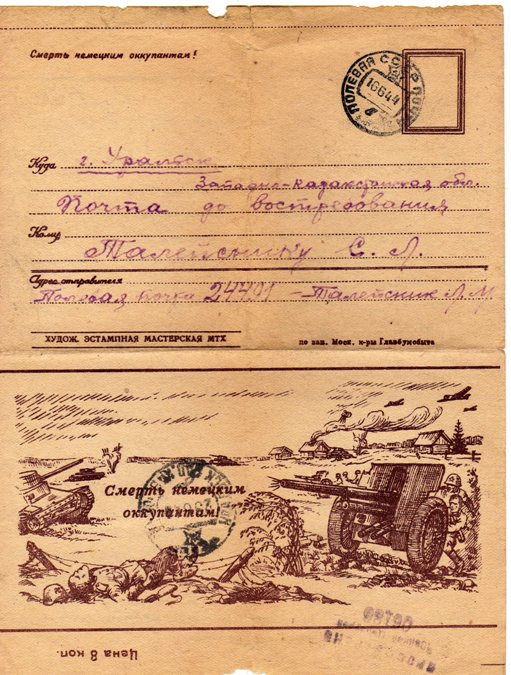 Смерть немецким оккупантам!
ПОЛЕВАЯ ПОЧТА
16644
Куда г. Уральск
Западно-Казахстанская обл.
Почта до востребования
Кому Талейснику С. Л.
Адрес отправителя
Полевая почта 24401 — Талейсник Л. М
ХУДОЖ. ЭСТАМПНАЯ МАСТЕРСКАЯ МТХ
по зак. Моск. к-ры Главбумсбыта
Смерть немецким
оккупантам!
Цена 8 коп.